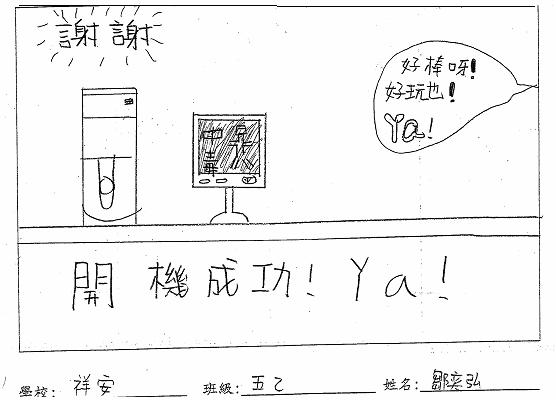 謝謝
好棒呀!
好玩也!
Ya!
開機成功! Ya!
學校: 祥安 班級: 五乙 姓名: 鄒奕弘